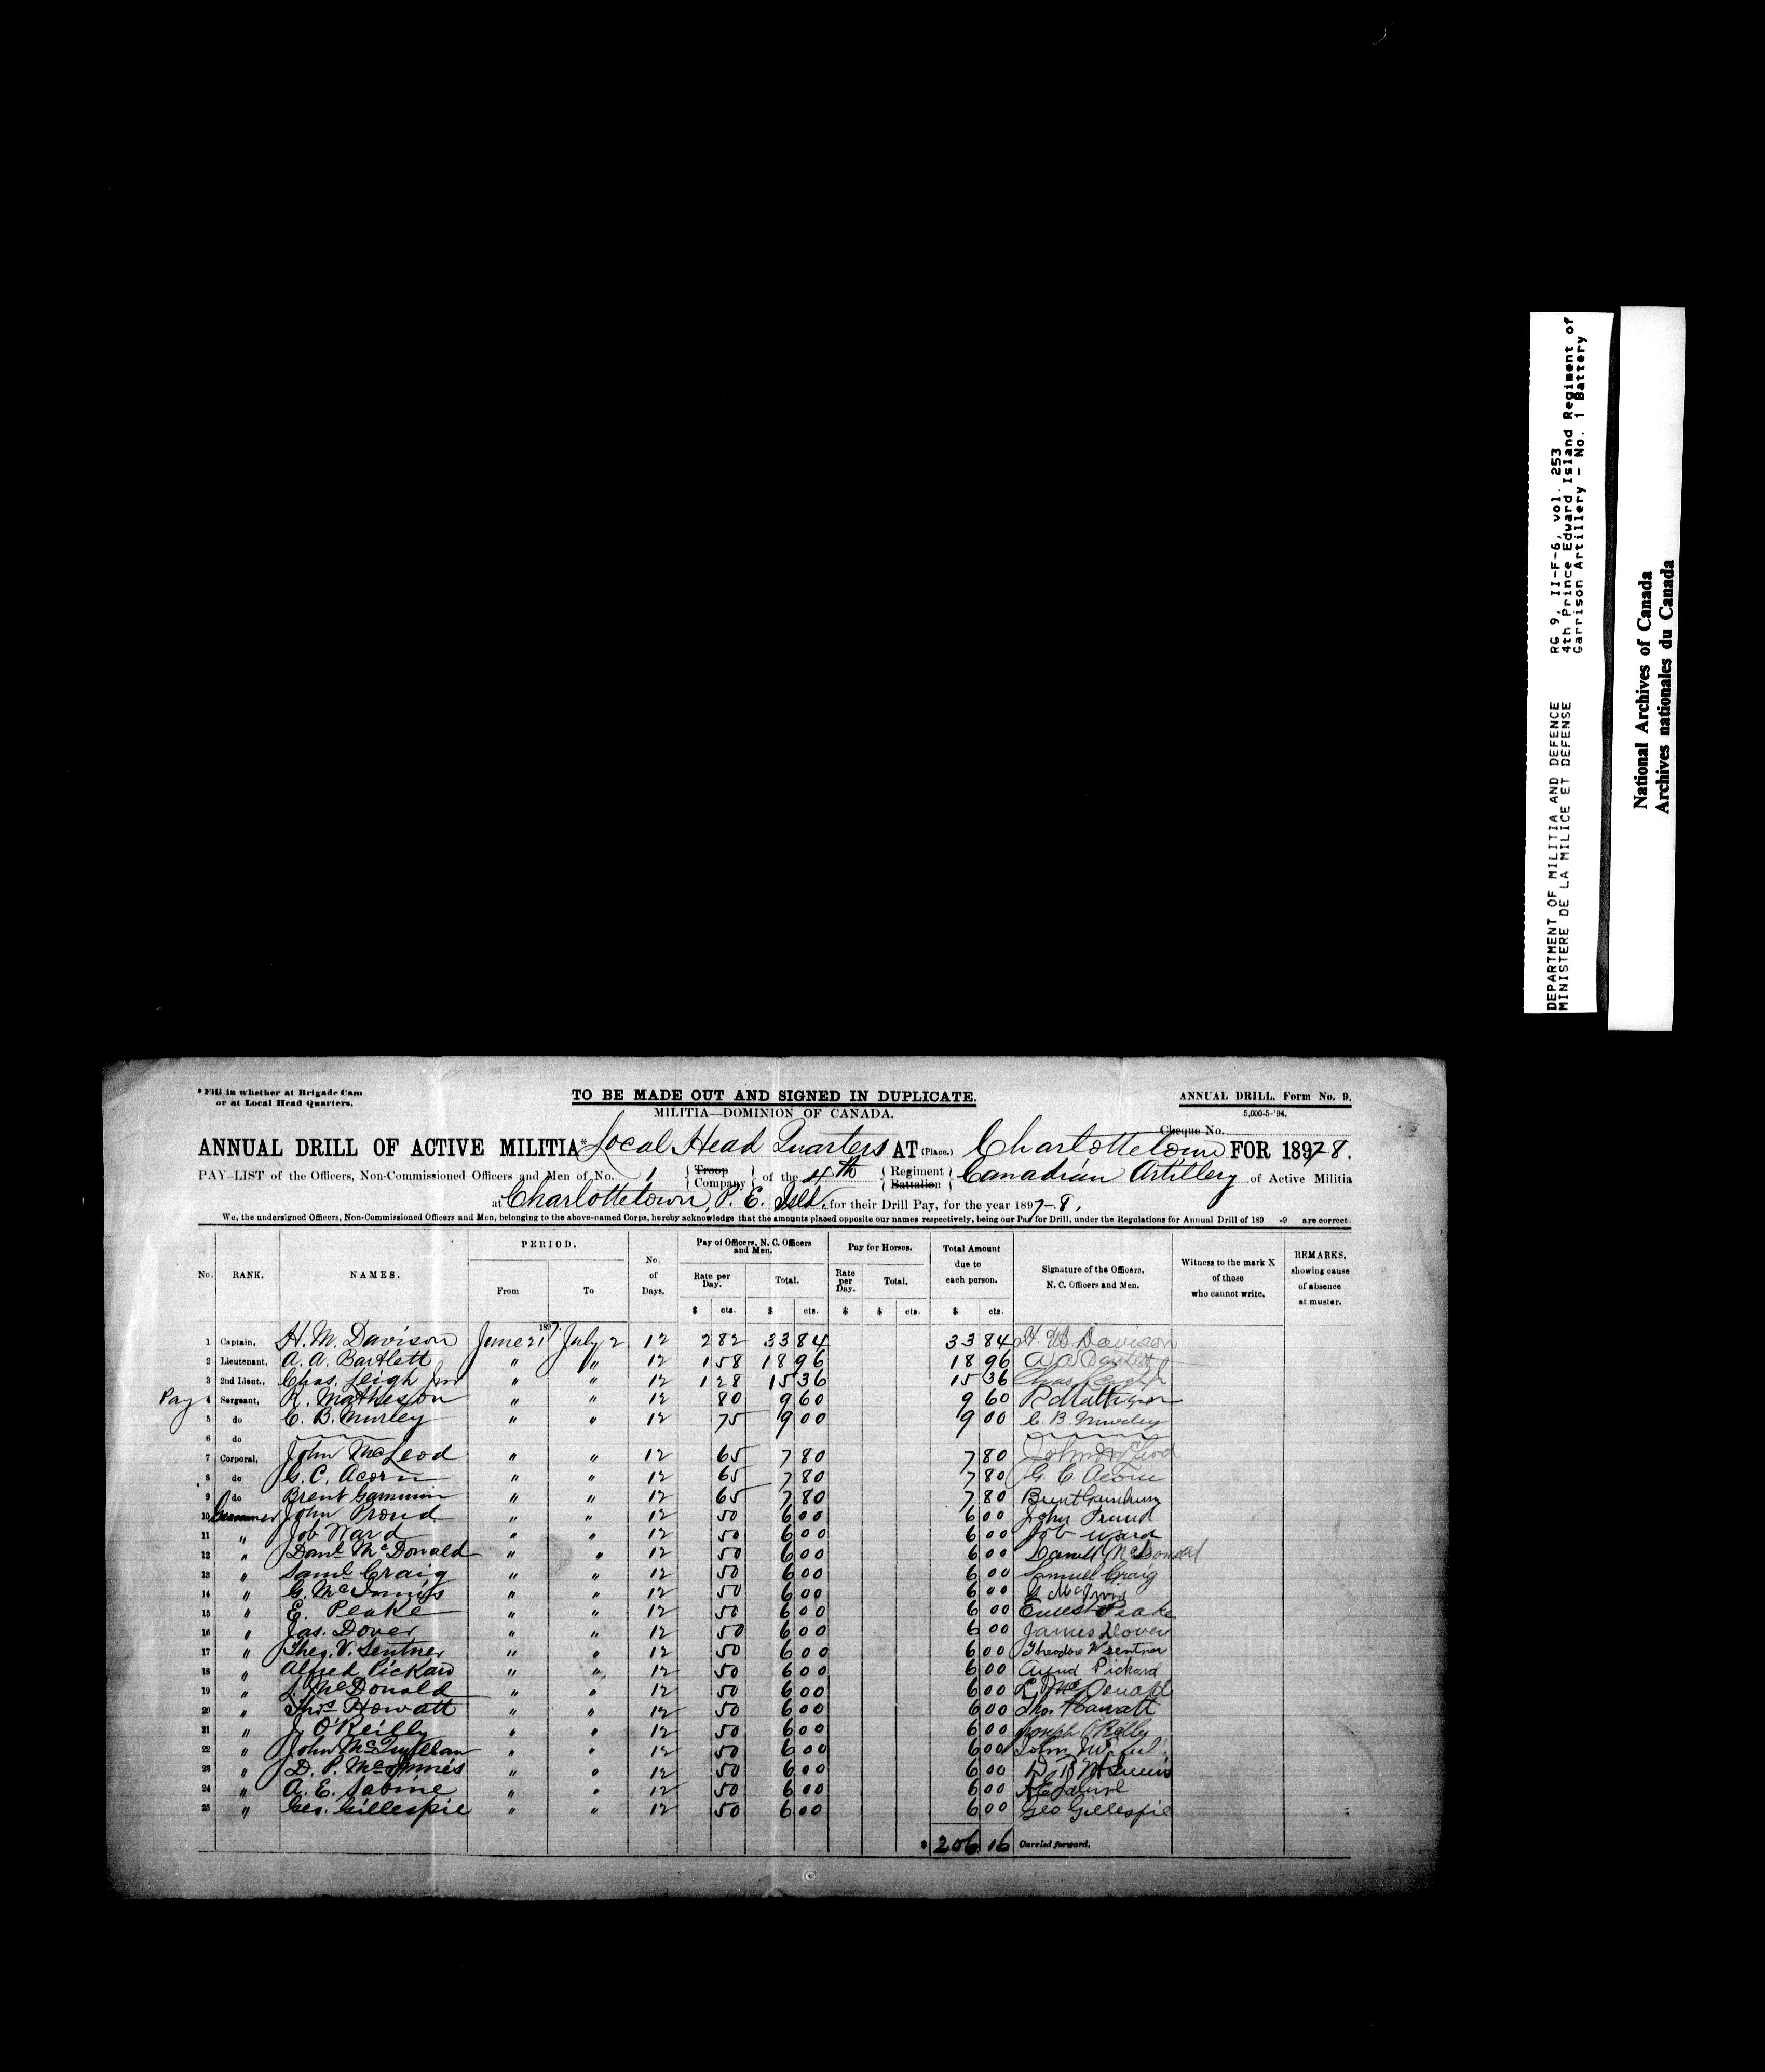 DEPARTMENT OF MILITIA AND DEFENCE RG 9, II-F-6, vol. 253
MINISTERE DE LA MILICE ET DEFENSE 4th Prince Edward Island Regiment of
Garrison Artillery - No. 1 Battery
National Archives of Canada
Archives nationales du Canada
* Fill in whether at Brigade Cam
or at Local Head Quarters.
TO BE MADE OUT AND SIGNED IN DUPLICATE.
MILITIA—DOMINION OF CANADA.
ANNUAL DRILL, Form No. 9.
5,000-5-'94.
Cheque No.
ANNUAL DRILL OF ACTIVE MILITIA* Local Head Quarters AT (Place.) Charlottetown FOR 1897-8.
PAY-LIST of the Officers, Non-Commissioned Officers and Men of No. 1 { Troop Company } of the 4th { Regiment Battalion } Canadian Artillery of Active Militia
at Charlottetown, P. E. Isld. for their Drill Pay, for the year 1897-8.
We, the undersigned Officers, Non-Commissioned Officers and Men, belonging to the above-named Corps, hereby acknowledge that the amounts placed opposite our names respectively, being our Pay for Drill, under the Regulations for Annual Drill of 189 -9 are correct.
No. RANK. NAMES. PERIOD. From To No. of Days. Pay of Officers, N. C. Officers and Men. Rate per Day. $ cts. Total. $ cts. Pay for Horses. Rate per Day. $ Total. $ cts. Total Amount due to each person. $ cts. Signature of the Officers, N. C. Officers and Men. Witness to the mark X of those who cannot write. REMARKS, showing cause of absence at muster.
1897.
1 Captain, H. M. Davison June 21 July 2 12 2 82 33 84 33 84 H. M. Davison
2 Lieutenant, A. A. Bartlett " " 12 1 58 18 96 18 96 A A Bartlett
3 2nd Lieut., Chas. Leigh Jnr " " 12 1 28 15 36 15 36 Chas Leigh Jr
Pay 4 Sergeant, R. Matheson " " 12 80 9 60 9 60 R Matheson
5 do C. B. Murley " " 12 75 9 00 9 00 C. B. Murley
6 do
7 Corporal, John McLeod " " 12 65 7 80 7 80 John McLeod
8 do G. C. Acorn " " 12 65 7 80 7 80 G. C. Acorn
9 do Brent Gammin " " 12 65 7 80 7 80 Brent Gammin
10 Gunner John Proud " " 12 50 6 00 6 00 John Proud
11 " Job Ward " " 12 50 6 00 6 00 Job Ward
12 " Danl. McDonald " " 12 50 6 00 6 00 Daniel McDonald
13 " Saml. Craig " " 12 50 6 00 6 00 Samuel Craig
14 " G. McInnis " " 12 50 6 00 6 00 G McInnis
15 " E. Peake " " 12 50 6 00 6 00 Ernest Peake
16 " Jas. Dover " " 12 50 6 00 6 00 James Dover
17 " Theo. V. Sentner " " 12 50 6 00 6 00 Theodore V sentner
18 " Alfred Pickard " " 12 50 6 00 6 00 Alfred Pickard
19 " McDonald " " 12 50 6 00 6 00 McDonald
20 " Thos Howatt " " 12 50 6 00 6 00 Thos Howatt
21 " J. O'Reilly " " 12 50 6 00 6 00 Joseph O'Reilly
22 " John " " 12 50 6 00 6 00 John
23 " D. P. McInnis " " 12 50 6 00 6 00 D P McInnis
24 " A. E. Sabine " " 12 50 6 00 6 00 A E Sabine
25 " Geo. Gillespie " " 12 50 6 00 6 00 Geo Gillespie
$ 206 16 Carried forward.